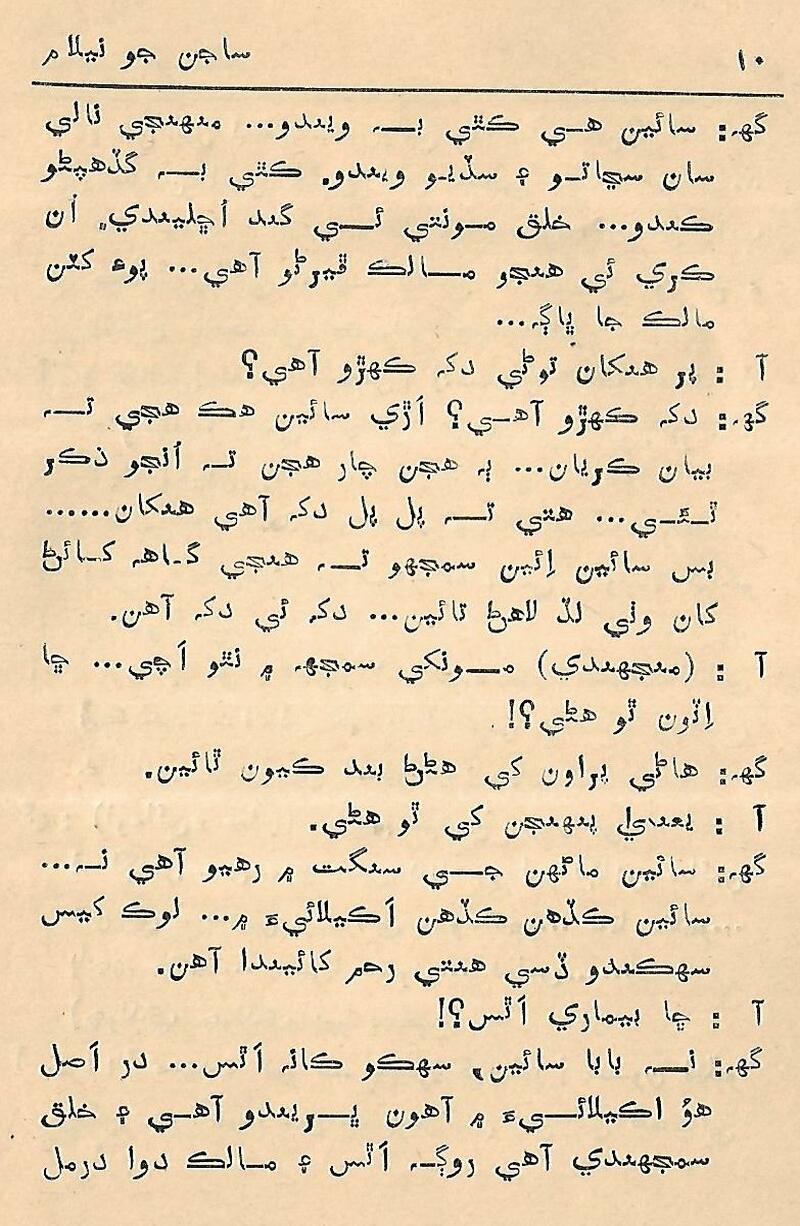 ١٠ ساجن جو نيلام
گهہ: سائين هي ڪٿي بہ ويندو... منهنجي نالي
سان سڃاتو ۽ سڏيو ويندو. ڪٿي بہ گڏهپڻو
ڪندو... خلق مونتي ئي گند اُڇليندي، اُن
ڪري ئي هنجو مالڪ ڦيرڻو آهي... پوءِ ڪٿن
مالڪ جا ڀاڳہ...
آ : پر هنکان توڻي دکہ ڪهڙو آهي؟
گهہ: دکہ ڪهڙو آهي؟ اَڙي سائين هڪ هجي تہ
بيان ڪريان... ٻہ هجن چار هجن تہ اُنجو ذڪر
ٿئي... هتي تہ پل پل دکہ آهي هنکان......
بس سائين اِئين سمجهو تہ هنجي گاهہ کائڻ
کان وٺي لڏ لاهڻ تائين... دکہ ئي دکہ آهن.
آ : (منجهندي) مونکي سمجهہ ۾ نٿو اَچي... ڇا
اِٽون ٿو هڻي؟!
گهہ: هاڻي پراون کي هڻڻ بند ڪيون ٿائين.
آ : يعني پنهنجن کي ٿو هڻي.
گهہ: سائين ماڻهن جي سنگت ۾ رهيو آهي نہ...
سائين ڪڏهن ڪڏهن اَڪيلائيءَ ۾... لوڪ کيس
سهڪندو ڏسي هنتي رحم کائيندا آهن.
آ : ڇا بيماري اَٿس؟!
گهہ: نہ بابا سائين، سهڪو ڪانہ اَٿس... در اَصل
هوُ اڪيلائيءَ ۾ آهون ڀريندو آهي ۽ خلق
سمجهندي آهي روڳہ اَٿس ۽ مالڪ دوا درمل